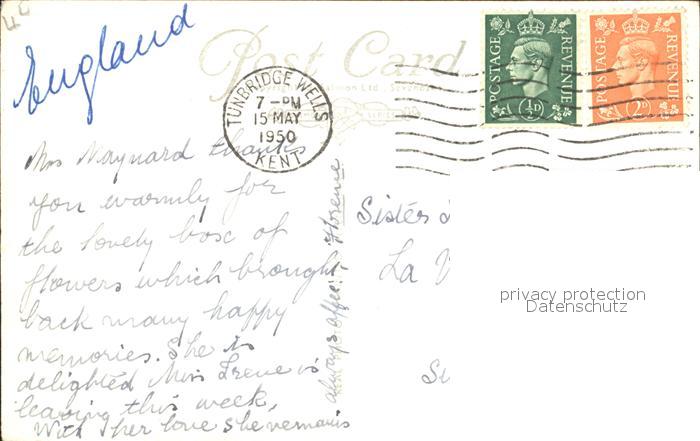 England
Post Card
Salmon Ltd., Sevenoaks
POSTAGE REVENUE
½D
POSTAGE REVENUE
2D
TUNBRIDGE WELLS
7 - PM
15 MAY
1950
KENT
Mrs Maynard thanks
you warmly for
the lovely box of
flowers which brought
back many happy
memories. She is
delighted Miss Irene is
leaving this week,
With her love she remains
always affec: Florence
Sister
La
privacy protection
Datenschutz